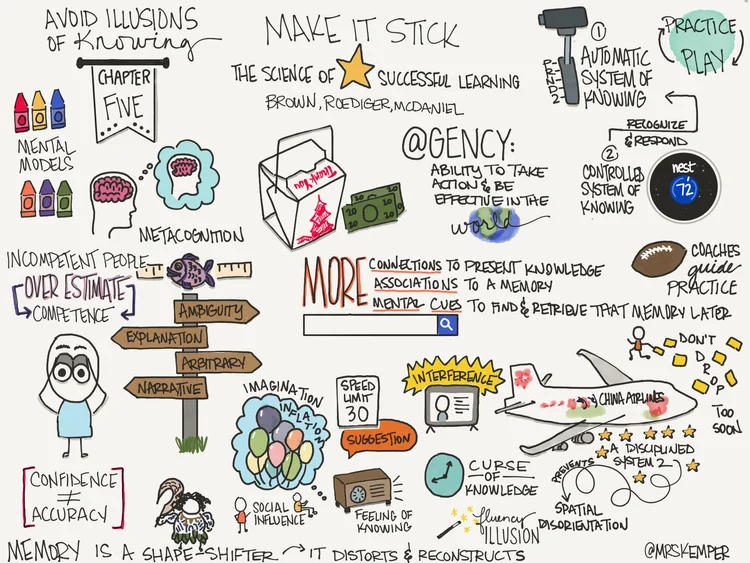 AVOID ILLUSIONS
OF Knowing
CHAPTER
FIVE
MAKE IT STICK
THE SCIENCE OF SUCCESSFUL LEARNING
BROWN, ROEDIGER, MCDANIEL
①
AUTOMATIC
SYSTEM OF
KNOWING
PRACTICE
PLAY
RECOGNIZE
& RESPOND
②
CONTROLLED
SYSTEM OF
KNOWING
nest
72
MENTAL
MODELS
METACOGNITION
Thank You
20
20
@GENCY:
ABILITY TO TAKE
ACTION & BE
EFFECTIVE IN THE
world
COACHES
guide
PRACTICE
INCOMPETENT PEOPLE
OVER ESTIMATE
COMPETENCE
AMBIGUITY
EXPLANATION
ARBITRARY
NARRATIVE
MORE CONNECTIONS TO PRESENT KNOWLEDGE
ASSOCIATIONS TO A MEMORY
MENTAL CUES TO FIND & RETRIEVE THAT MEMORY LATER
DON'T
DROP
TOO
SOON
IMAGINATION
INFLATION
SPEED
LIMIT
30
SUGGESTION
INTERFERENCE
CHINA AIRLINES
A DISCIPLINED
SYSTEM 2
PREVENTS
SPATIAL
DISORIENTATION
CONFIDENCE
≠
ACCURACY
SOCIAL
INFLUENCE
FEELING OF
KNOWING
CURSE
OF
KNOWLEDGE
fluency
ILLUSION
MEMORY IS A SHAPE-SHIFTER → IT DISTORTS & RECONSTRUCTS
@MRSKEMPER